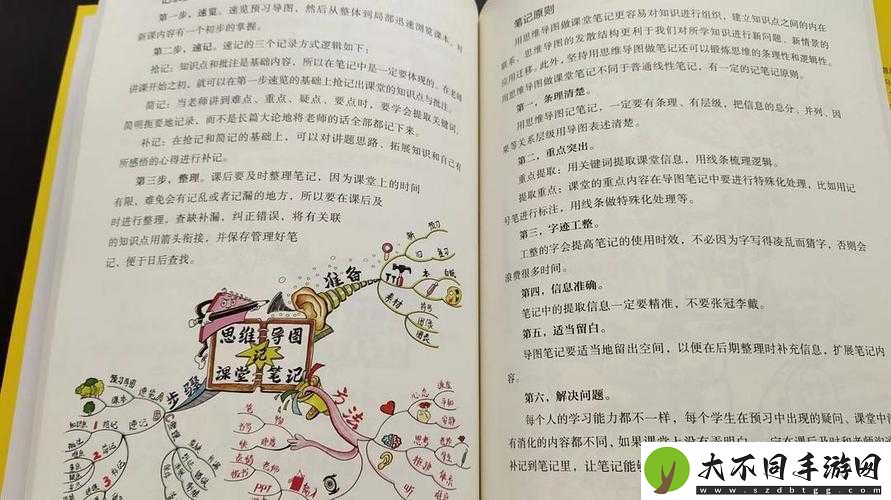 第一步，速览。速览预习导图，然后从整体到局部迅速浏览课本，对
新课内容有一个初步的掌握。
第二步，速记。速记的三个记录方式逻辑如下：
抢记：知识点和批注是基础内容，所以在笔记中是一定要体现的。在老师
讲课开始之初，就可以在第一步速览的基础上抢记出课堂的知识点与批注。
简记：当老师讲到难点、重点、疑点、要点时，要学会提取关键词，
简明扼要地记录，而不是长篇大论地将老师的话全部都记下来。
补记：在抢记和简记的基础上，可以对讲题思路、拓展知识和自己有
所感悟的心得进行补记。
第三步，整理。课后要及时整理笔记，因为课堂上的时间
有限，难免会有记乱或者记漏的地方，所以要在课后及
时进行整理。查缺补漏，纠正错误，将有关联
的知识点用箭头衔接，并保存管理好笔
记，便于日后查找。
准备
思维导图
记
课堂笔记
步骤
方法
预习导图
课本
速览
速记
整理
抢记
补记
心态
思考
老师
PPT
笔记原则
用思维导图做课堂笔记更容易对知识进行组织，建立知识点之间的内在
联系。思维导图的发散结构更利于我们对所学知识进行新问题、新情景的
应用迁移。此外，坚持用思维导图做笔记还可以锻炼思维的条理性和逻辑性。
用思维导图做课堂笔记不同于普通线性笔记，有一定的记笔记原则。
第一，条理清楚。
用思维导图记笔记，一定要有条理、有层级，把信息的总分、并列、因
果等关系层级用导图表述清楚。
第二，重点突出。
重点提取：用关键词提取课堂信息，用线条梳理逻辑。
提取重点：课堂的重点内容在导图笔记中要进行特殊化处理，比如用记
号笔进行标注，用线条做特殊化处理等。
第三，字迹工整。
工整的字会提高笔记的使用时效，不必因为字写得凌乱而猜字，否则会
浪费很多时间。
第四，信息准确。
笔记中的提取信息一定要精准，不要张冠李戴。
第五，适当留白。
导图笔记要适当地留出空间，以便在后期整理时补充信息，扩展笔记内
容。
第六，解决问题。
每个人的学习能力都不一样，每个学生在预习中出现的疑问、课堂中
有消化的内容都不同，如果课堂上没有弄明白，一定在课后及时和老师沟
补记到笔记里，让笔记能够
大不同手游网
www.szdbtgg.com